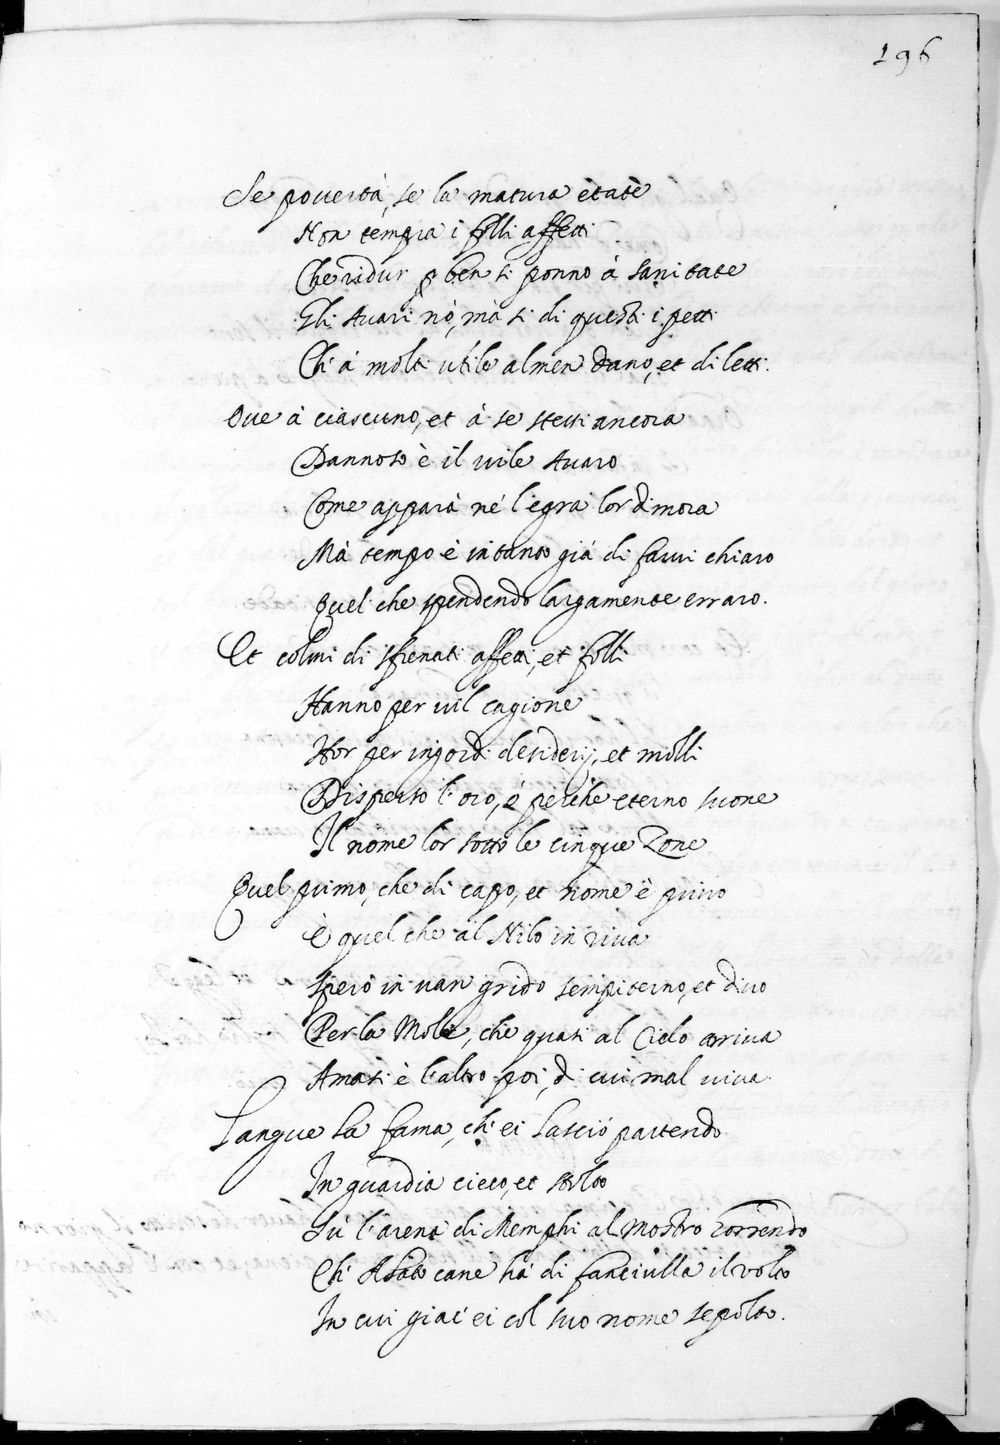 196
Se pouertà, se la matura etate
Non tempra i folli affetti
Che ridur p ben si ponno à sanitate
Gli Auari nò, mà si di questi i petti
Ch' à molti utile almen dano, et diletti.
Oue à ciascuno, et à se stessi ancora
Dannoso è il uile Auaro
Come apparà nè l'egra lor dimora
Mà tempo è intanto già di farui chiaro
Quel che spendendo largamente erraro.
Et colmi di sfrenati affetti, et folli
Hanno per uil cagione
Hor per ingordi desiderij, et molli
Disperso l'oro, è perche eterno suone
Il nome lor sotto le cinque Zone
Quel primo, che di capo, et nome è priuo
È quel che al Nilo in riua
Sperò in uan grido sempiterno, et diuo
Per la Mole, che quasi al Cielo arriua
Amasi è l'altro poi, di cui mal uiua
Langue la fama, ch' ei lasciò partendo
In guardia cieco, et stolto
Su l'arena di Memphi al mostro horrendo
Ch' Alato cane hà di fanciulla il volto
In cui giac' ei col suo nome sepolto.